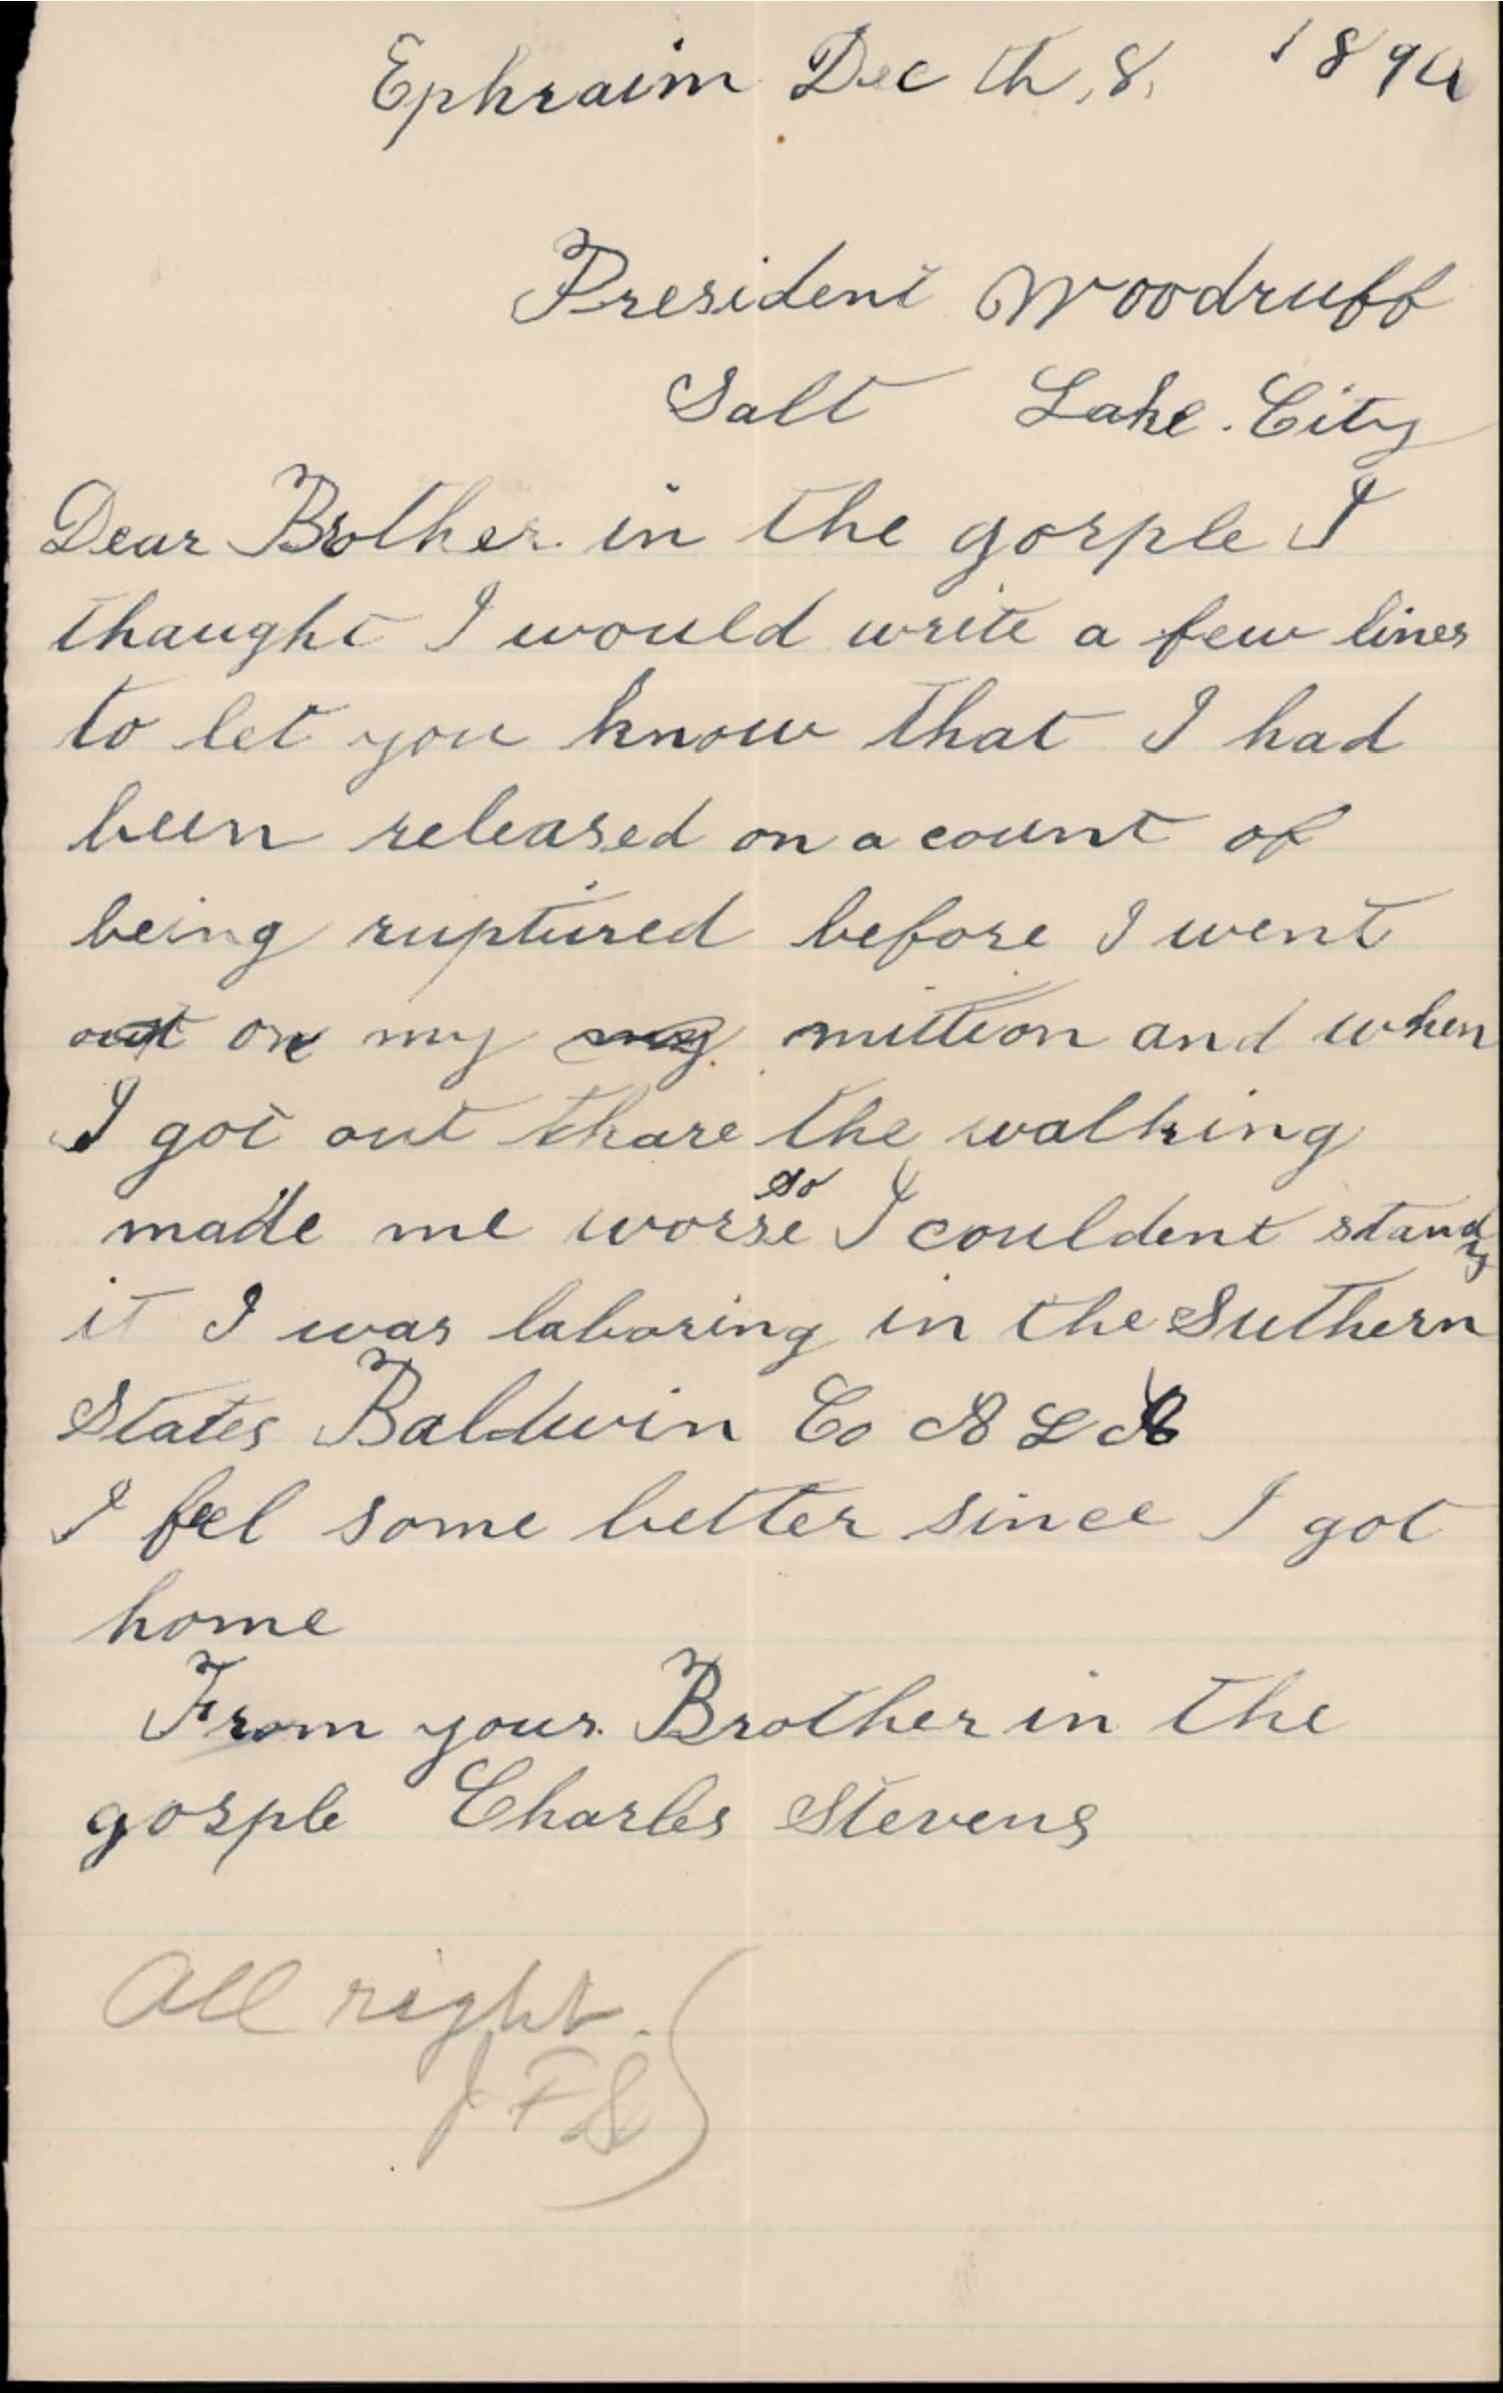 Ephraim Dec th, 8, 1894
President Woodruff
Salt Lake. City
Dear Brother in the gosple I
thaught I would write a few lines
to let you know that I had
been released on a count of
being ruptured before I went
out on my my mittion and when
I got out thare the walking
made me worse so I couldent stand
it I was laboring in the Suthern
States Baldwin Co ALA
I feel some better since I got
home
From your Brother in the
gosple Charles Stevens
All right.
J F S